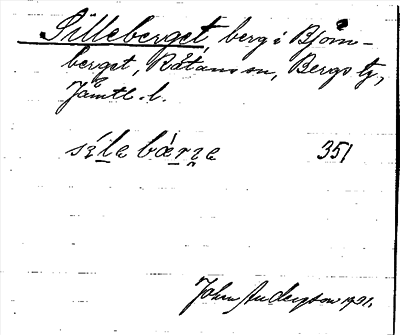 Silleberget, berg i Björn-
berget, Rätans sn, Bergs tg,
Jämtl. l.
351
John Anderson 1931.